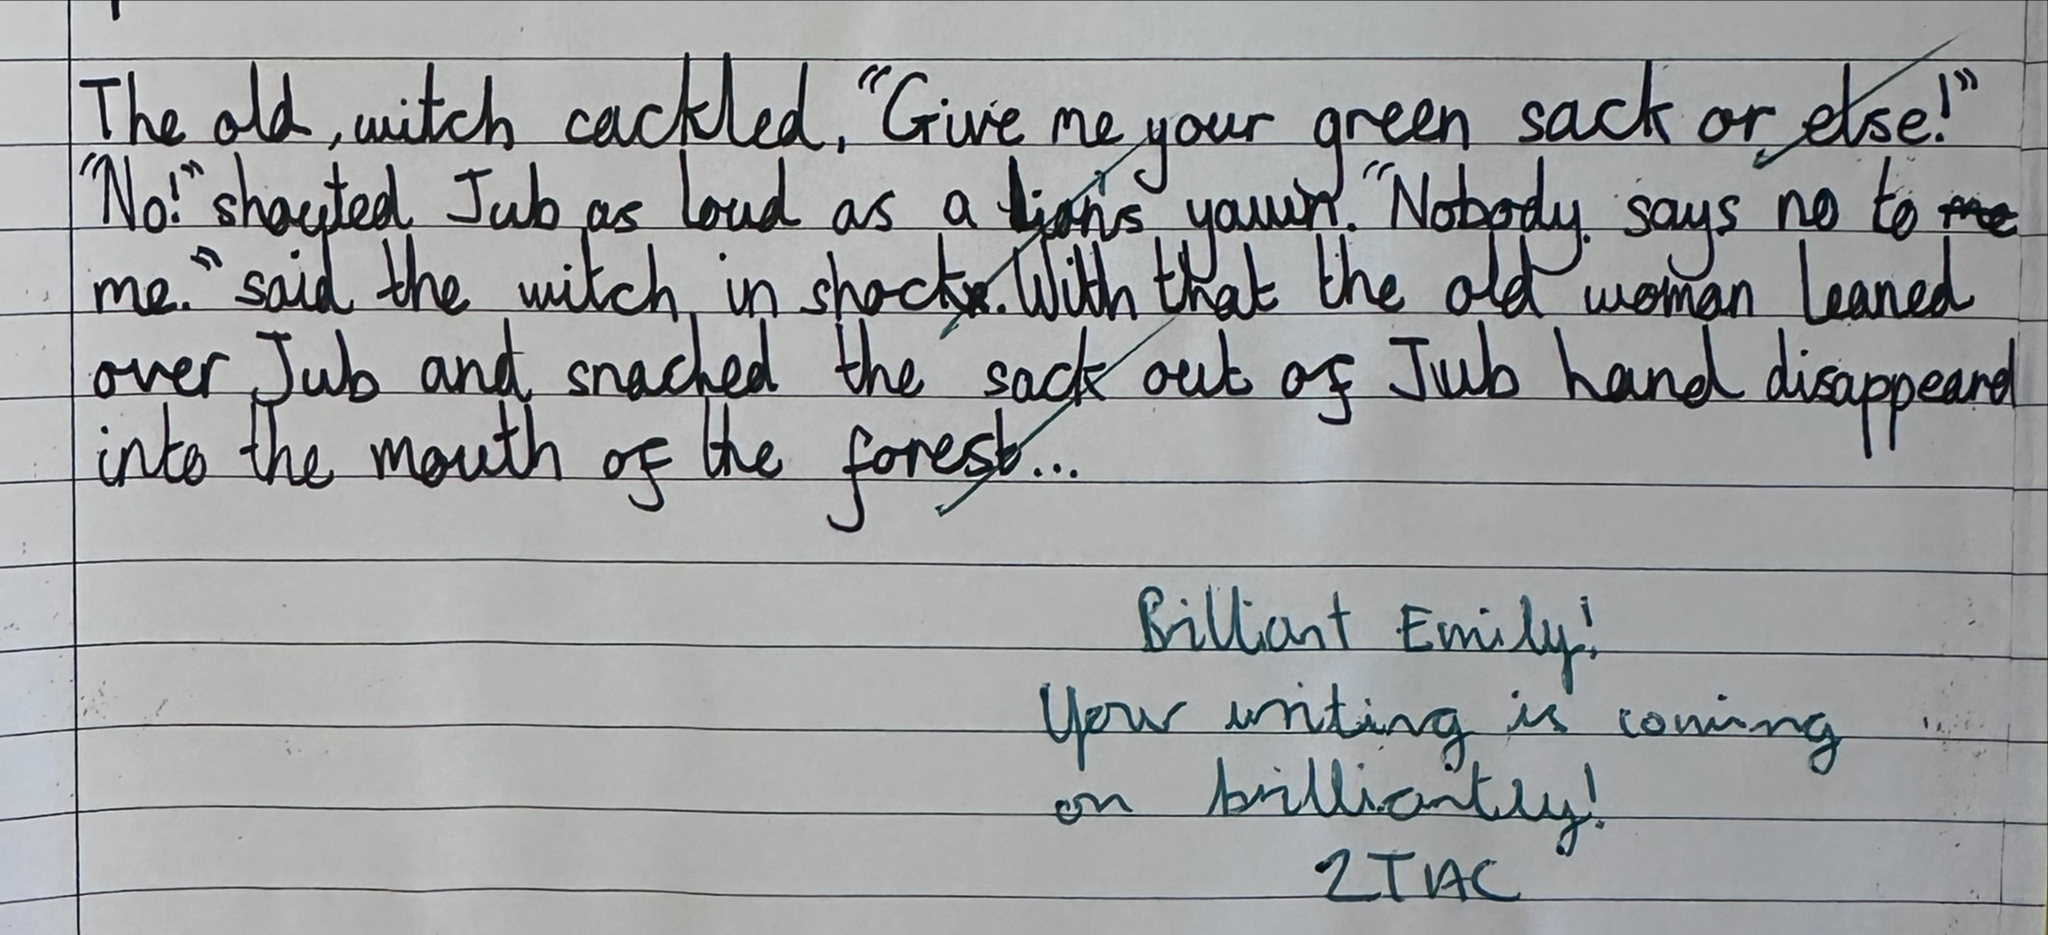 The old, witch cackled, “Give me your green sack or else!”
“No!” shouted Jub as loud as a lions yawn. “Nobody says no to me
me.” said the witch in shock. With that the old woman leaned
over Jub and snached the sack out of Jub hand disappeard
into the mouth of the forest...
Brilliant Emily!
Your writing is coming
on brilliantly!